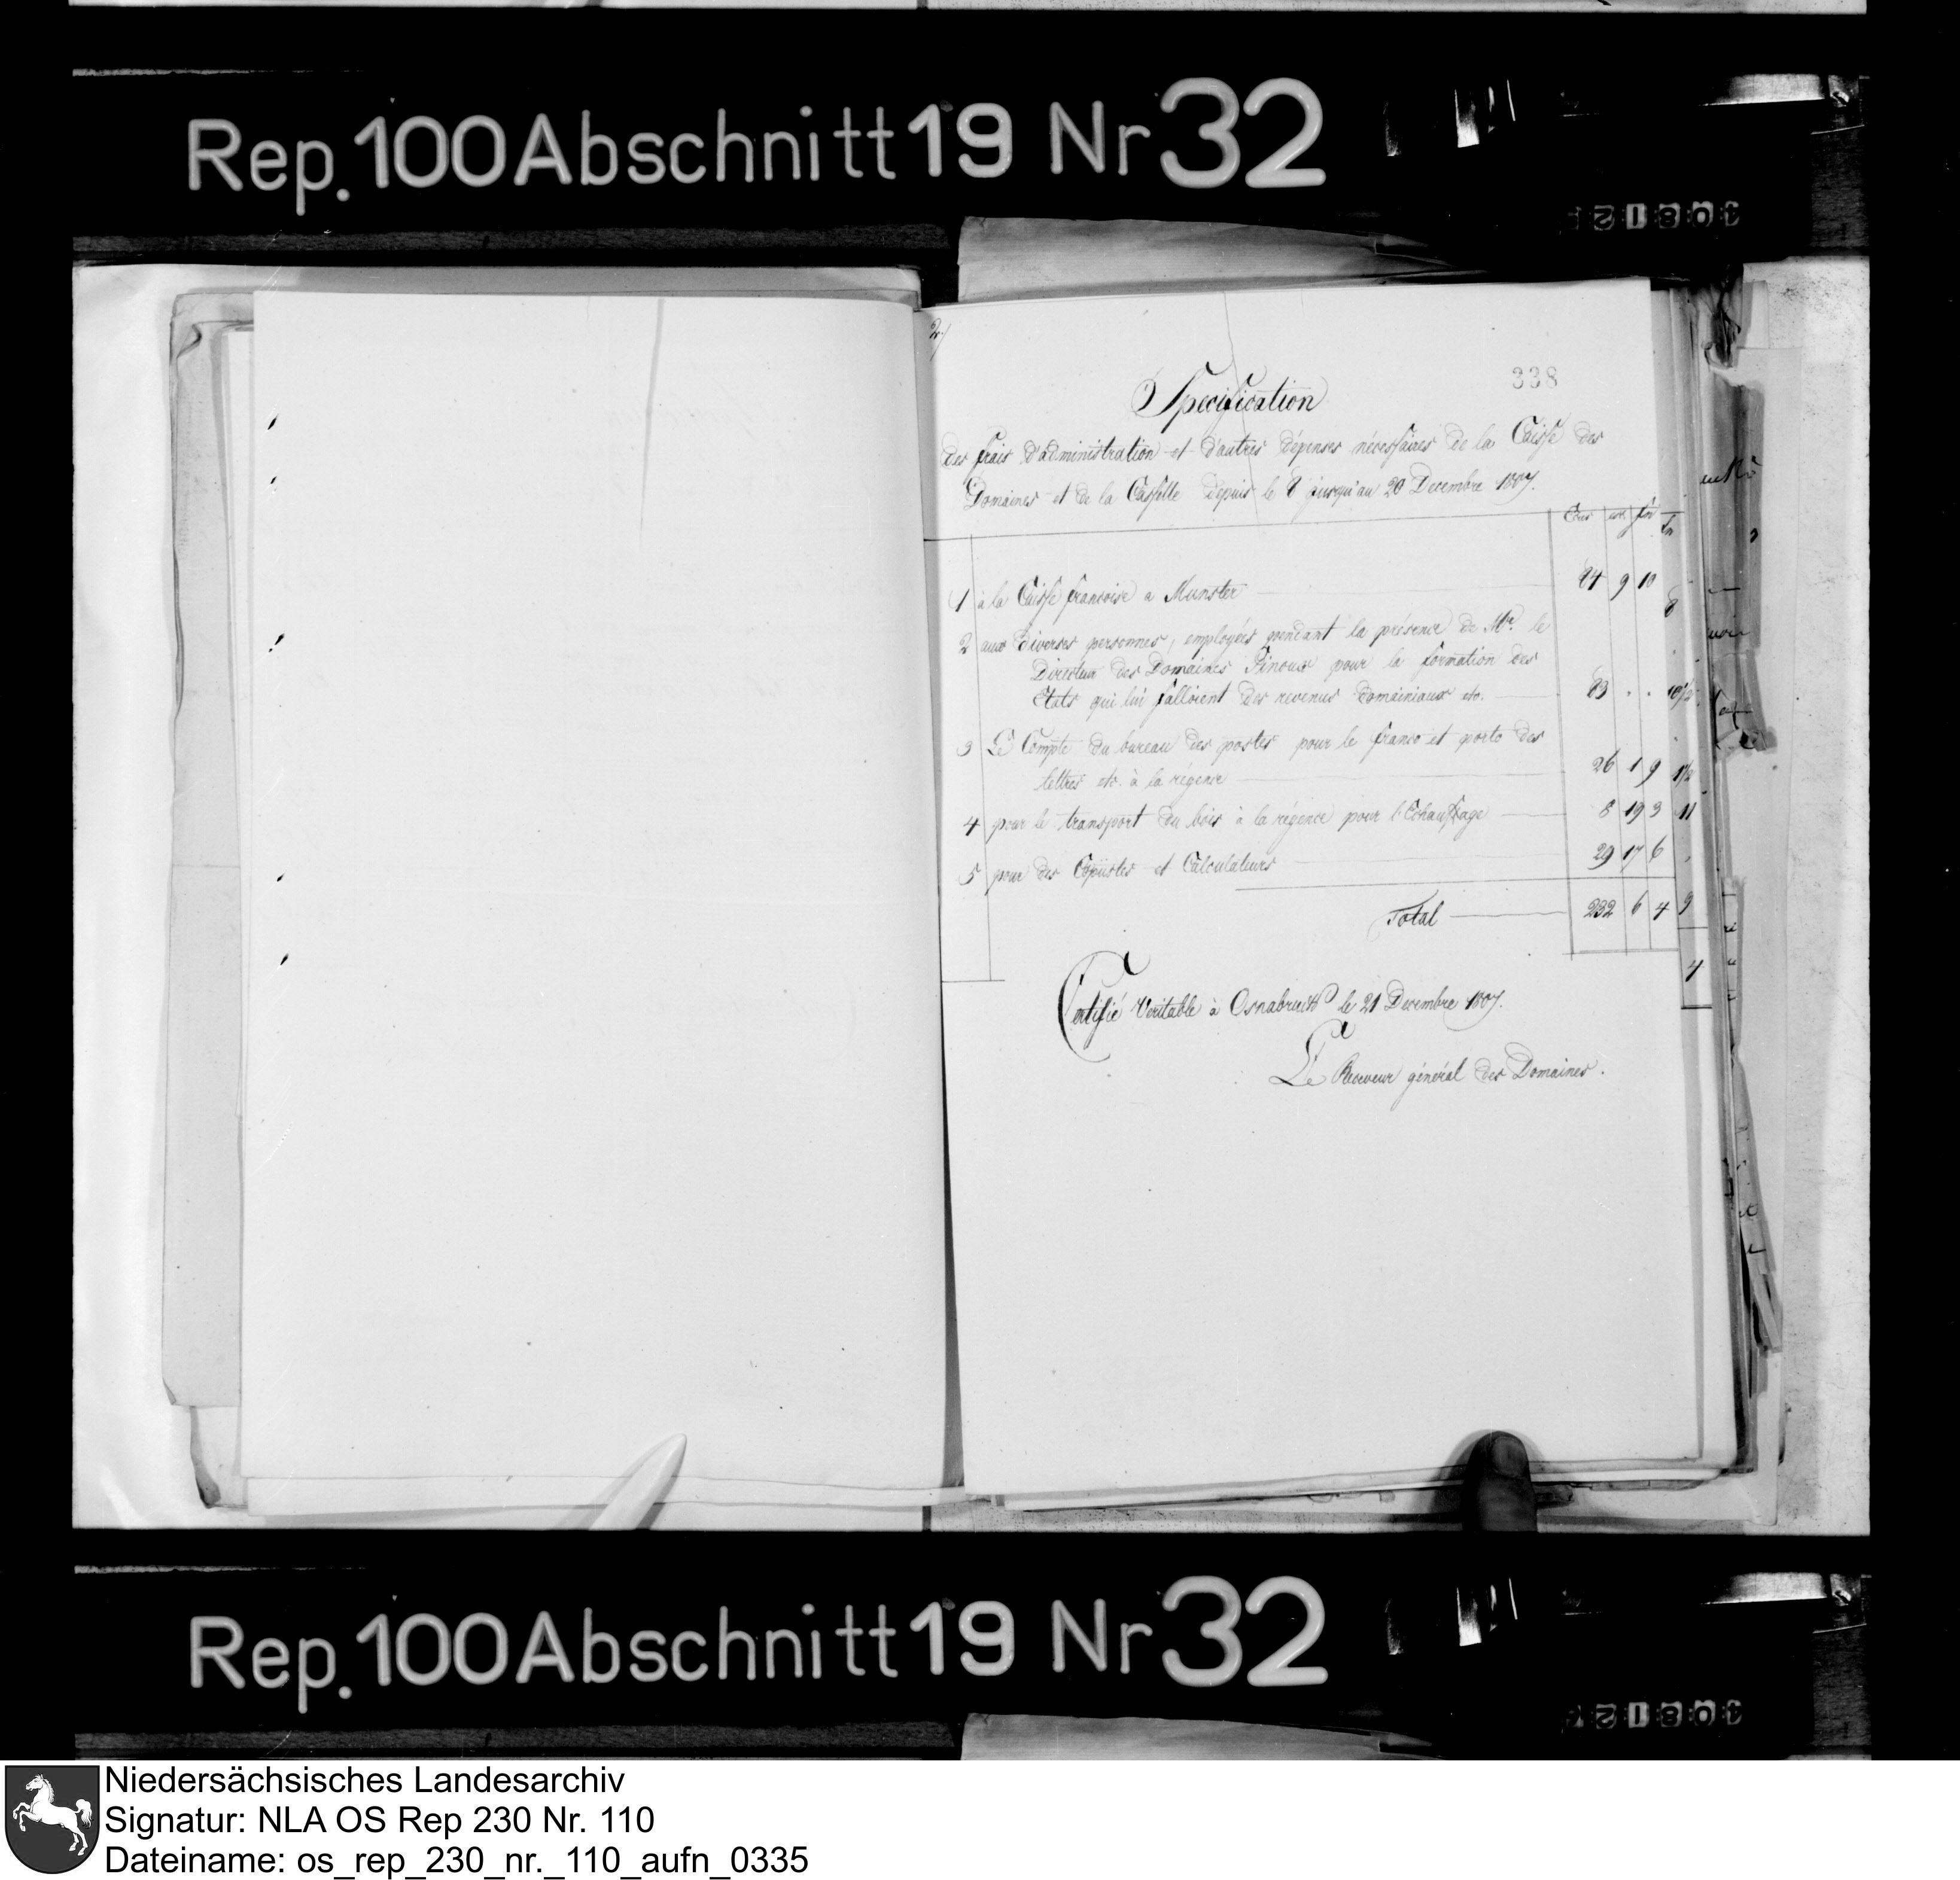 Rep.100 Abschnitt 19 Nr 32
2/
338
Specification
des frais d'administration et d'autres dépenses nécessaires de la Caisse des
Domaines et de la Cassette depuis le 8 jusqu'au 20 Decembre 1807.
1 à la Caisse francoise a Munster 84 9 10
2 aux diverses personnes, employées pendant la présence de Mr. le
Directeur des Domaines Pinoux pour la formation des
Etats qui lui falloient des revenus domainiaux etc. 83 . .
3 Le Compte du bureau des postes pour le franco et porto des
lettres etc. à la régence 26 1 9
4 pour le transport du bois à la régence pour l'Echauffage 8 19 3
5 pour des Copiistes et Calculateurs 29 17 6
Total 232 6 4
Certifié Veritable à Osnabruck le 21 Decembre 1807.
Le Receveur général des Domaines.
Rep.100 Abschnitt 19 Nr 32
Niedersächsisches Landesarchiv
Signatur: NLA OS Rep 230 Nr. 110
Dateiname: os_rep_230_nr._110_aufn_0335